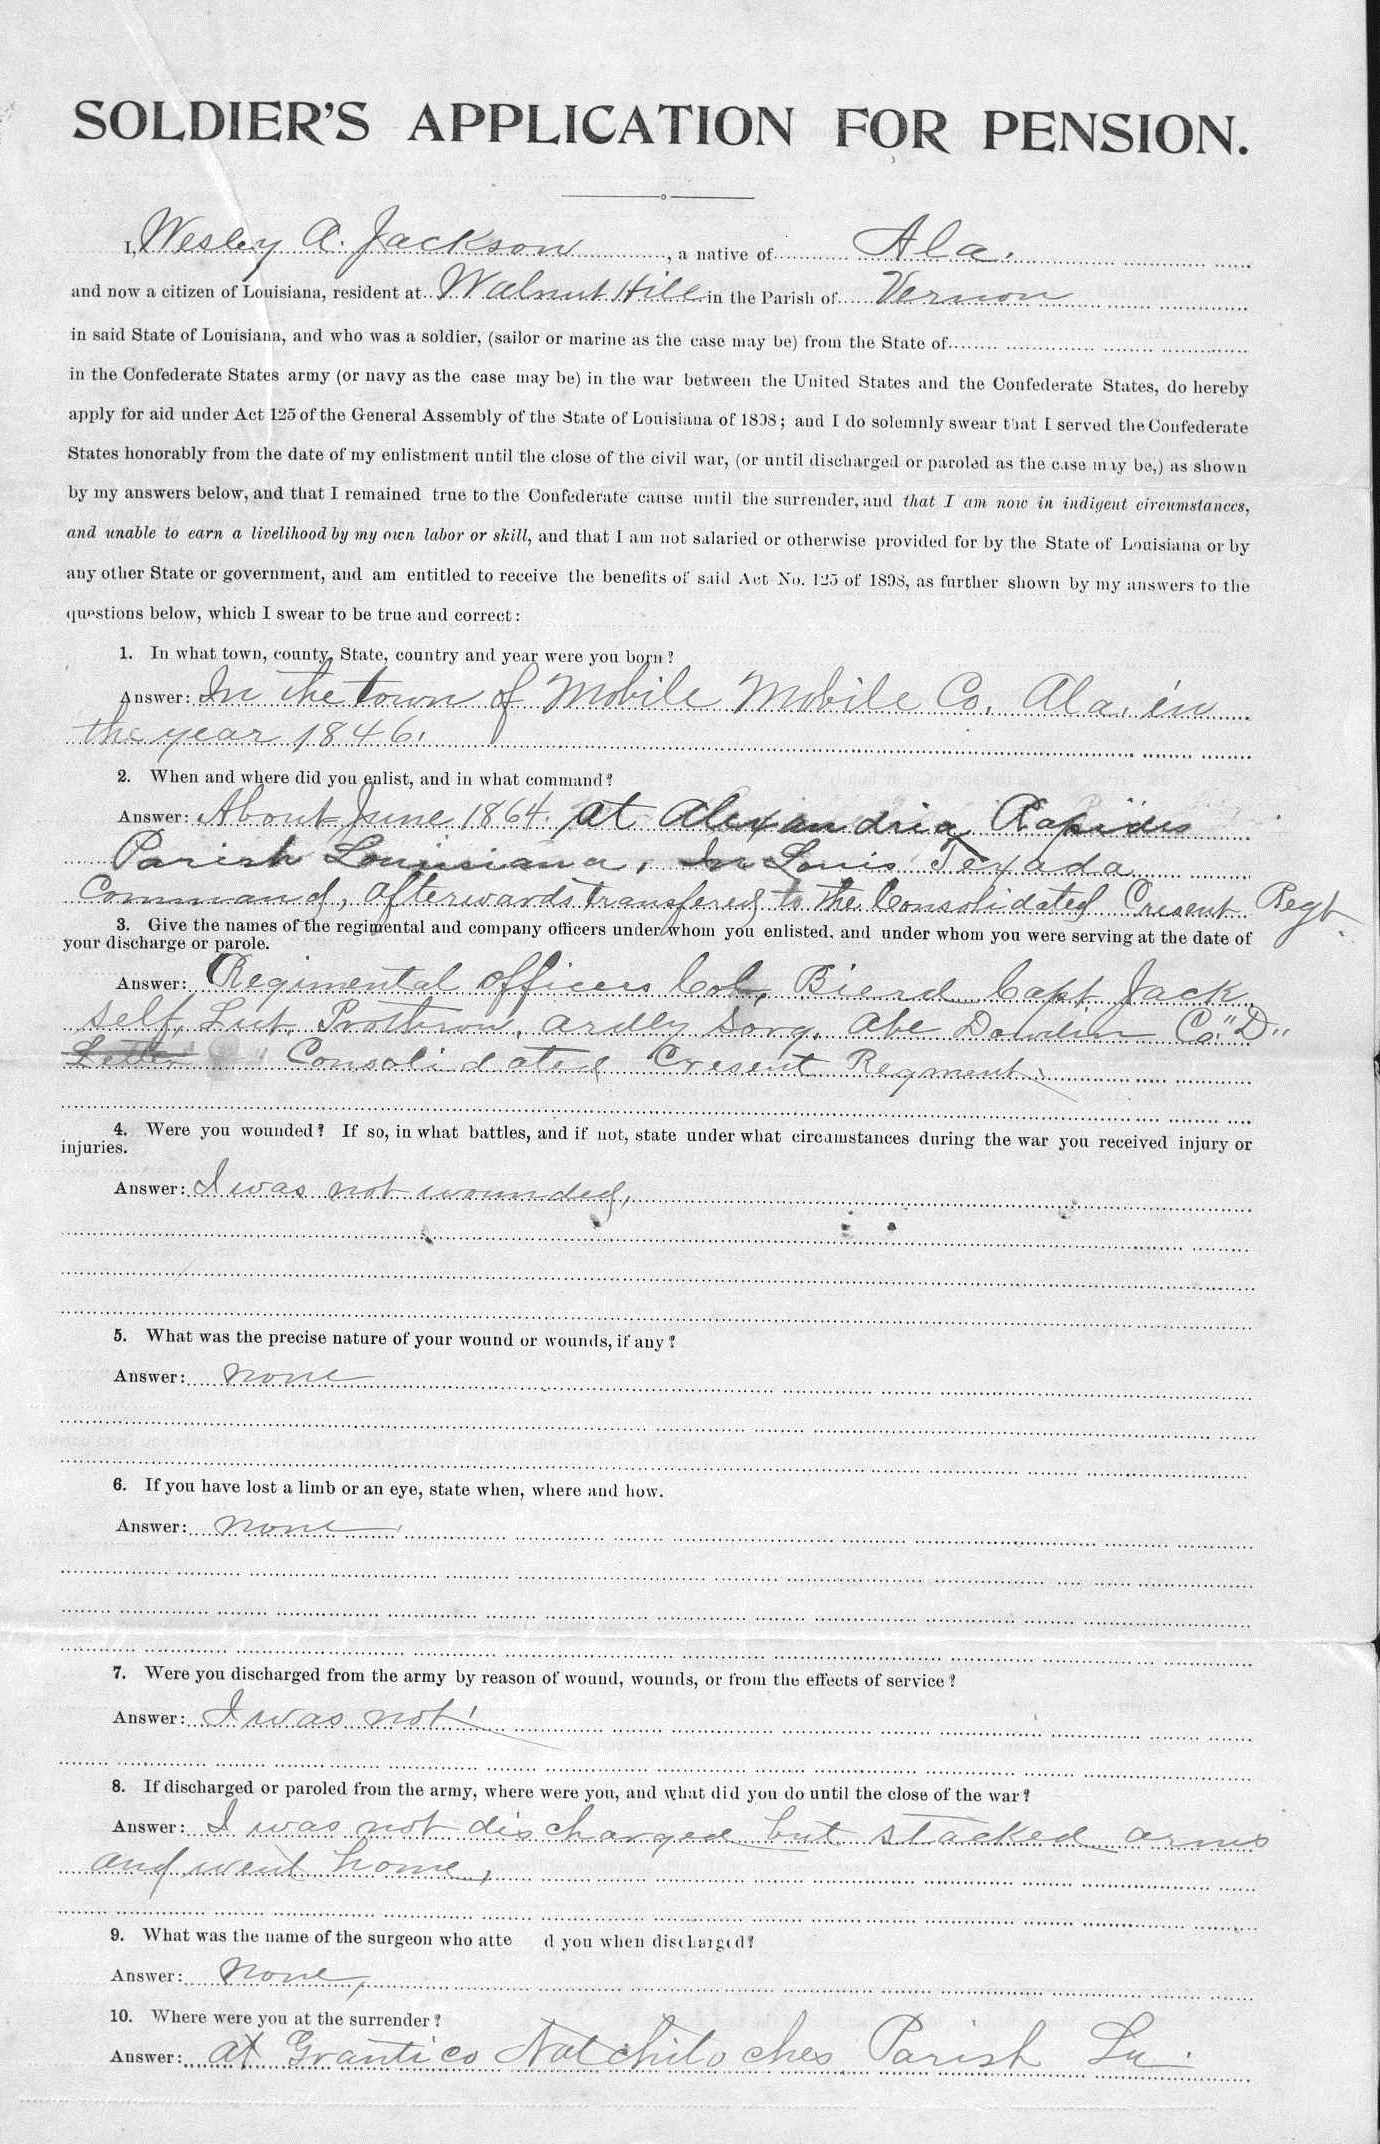 SOLDIER'S APPLICATION FOR PENSION.
I, Wesley A. Jackson, a native of Ala.
and now a citizen of Louisiana, resident at Walnut Hill in the Parish of Vernon
in said State of Louisiana, and who was a soldier, (sailor or marine as the case may be) from the State of
in the Confederate States army (or navy as the case may be) in the war between the United States and the Confederate States, do hereby
apply for aid under Act 125 of the General Assembly of the State of Louisiana of 1898; and I do solemnly swear that I served the Confederate
States honorably from the date of my enlistment until the close of the civil war, (or until discharged or paroled as the case may be,) as shown
by my answers below, and that I remained true to the Confederate cause until the surrender, and that I am now in indigent circumstances,
and unable to earn a livelihood by my own labor or skill, and that I am not salaried or otherwise provided for by the State of Louisiana or by
any other State or government, and am entitled to receive the benefits of said Act No. 125 of 1898, as further shown by my answers to the
questions below, which I swear to be true and correct:
1. In what town, county, State, country and year were you born?
Answer: In the town of Mobile Mobile Co. Ala. in
the year 1846.
2. When and where did you enlist, and in what command?
Answer: About June 1864. at Alexandria Rapides
Parish Louisiana, In Louis Texada
Command, afterwards transfered to the Consolidated Cresent Regt.
3. Give the names of the regimental and company officers under whom you enlisted, and under whom you were serving at the date of
your discharge or parole.
Answer: Regimental officers Col, Bierd Capt Jack
self, Lut. Prothrow, ardly Sorg. Abe Dowden Co "D"
Letter Consolidated Cresent Regment.
4. Were you wounded? If so, in what battles, and if not, state under what circumstances during the war you received injury or
injuries.
Answer: I was not wounded,
5. What was the precise nature of your wound or wounds, if any?
Answer: none
6. If you have lost a limb or an eye, state when, where and how.
Answer: none
7. Were you discharged from the army by reason of wound, wounds, or from the effects of service?
Answer: I was not
8. If discharged or paroled from the army, where were you, and what did you do until the close of the war?
Answer: I was not discharged but stacked arms
and went home,
9. What was the name of the surgeon who atte d you when discharged?
Answer: none,
10. Where were you at the surrender?
Answer: at Grantico Natchitoches Parish La.